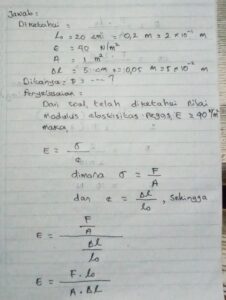 Jawab:
Diketahui :
l₀ = 20 cm = 0,2 m = 2 × 10⁻¹ m
E = 40 N/m²
A = 1 m²
Δl = 5 cm = 0,05 m = 5 × 10⁻² m
Ditanya: F = .... ?
Penyelesaian :
Dari soal, telah diketahui nilai
modulus elastisitas pegas, E = 40 N/m²
maka,
E = σ / e
dimana σ = F / A
dan e = Δl / l₀ , sehingga
E = (F / A) / (Δl / l₀)
E = F . l₀ / A . Δl